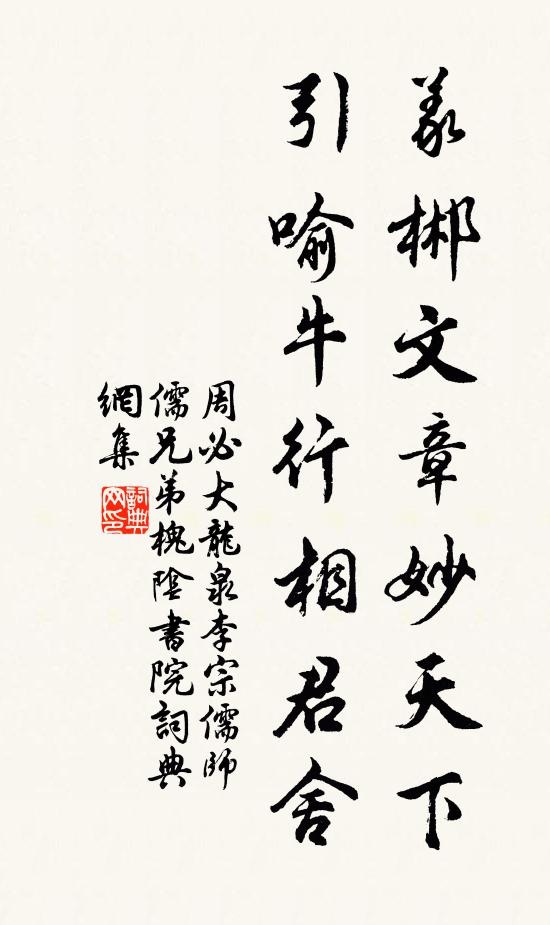 義郴文章妙天下
引喻牛行相君舍
周必大龍泉李宗儒師
儒兄弟槐陰書院詞典
網集
詞典
网印